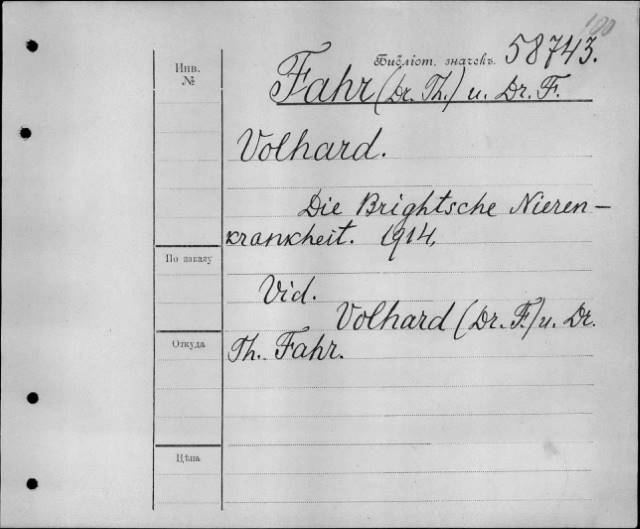 190
Библіот. значекъ 58743.
Инв.
№
Fahr (Dr. Th.) u. Dr. F.
Volhard.
Die Brightsche Nieren-
krankheit. 1914,
По заказу
Vid.
Volhard (Dr. F.) u. Dr.
Откуда
Th. Fahr.
Цѣна